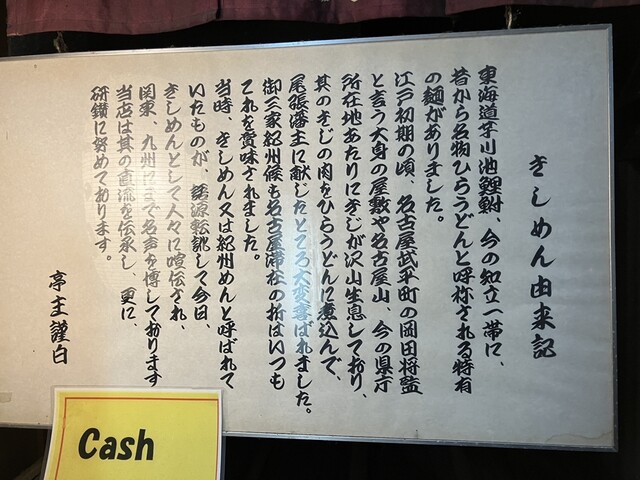 きしめん由来記
東海道芋川池鯉鮒、今の知立一帯に、
昔から名物ひらうどんと呼称される特有
の麺がありました。
江戸初期の頃、名古屋武平町の岡田将監
と言う大身の屋敷や名古屋山、今の県庁
所在地あたりにきじが沢山生息しており、
其のきじの肉をひらうどんに煮込んで、
尾張藩主に献じたところ大変喜ばれました。
御三家紀州候も名古屋滞在の折はいつも
これを賞味されました。
当時、きじめん又は紀州めんと呼ばれて
いたものが、語源転訛して今日、
きしめんとして人々に喧伝され、
関東、九州にまで名声を博しております
当店は其の直流を伝承し、更に、
研鑚に努めております。
亭主謹白
Cash